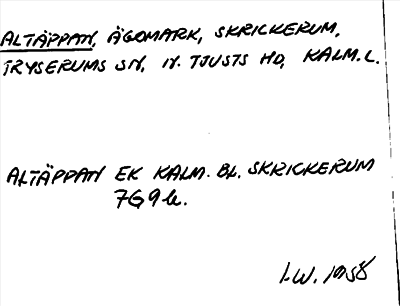 ALTÄPPAN, ÄGOMARK, SKRICKERUM,
TRYSERUMS SN, N. TJUSTS HD, KALM. L.
ALTÄPPAN EK KALM. BL. SKRICKERUM
7G9b.
I.W. 1958